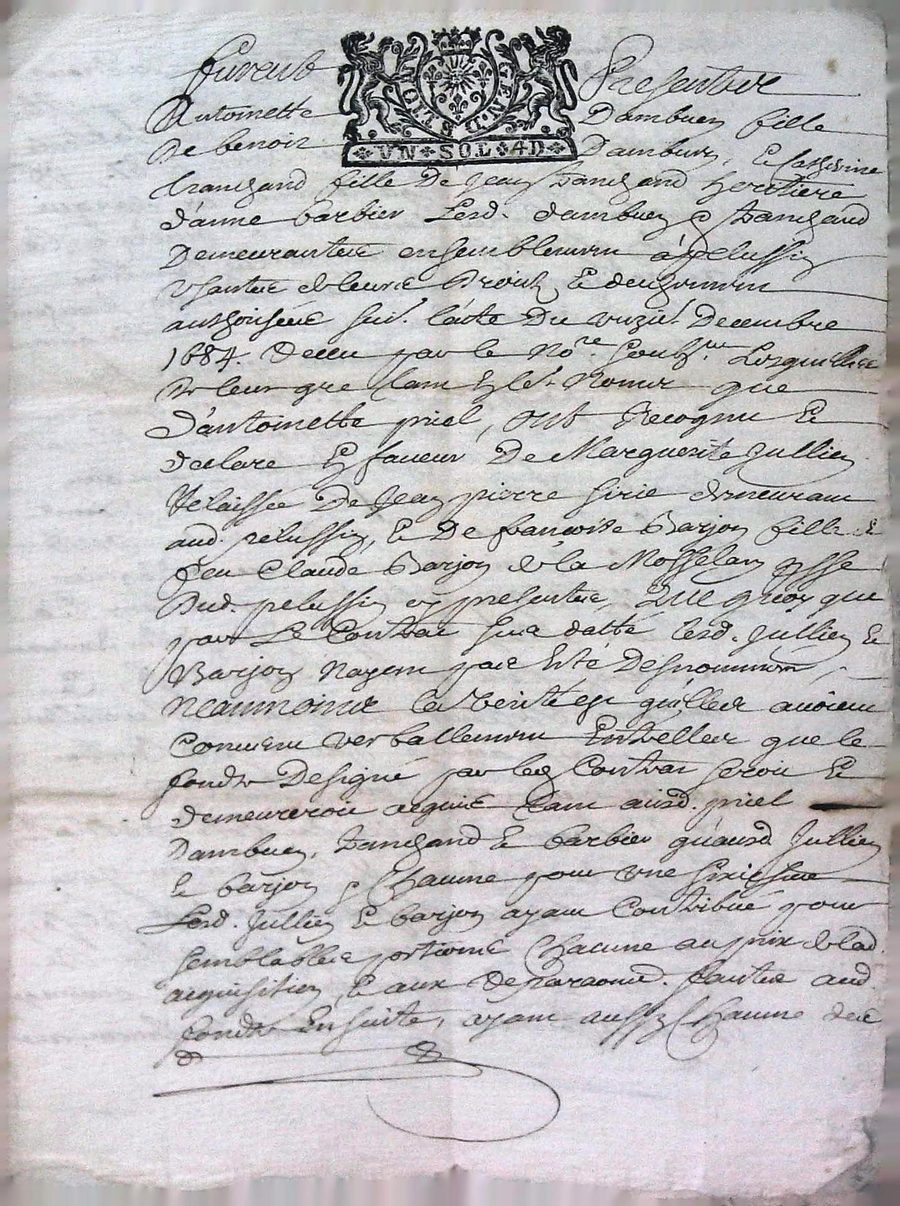 furent Presentes
GEND.D.LYON
VN SOL 4D
Antoinette Dambuen fille
De benoir Dambuen, et Catherine
tranchand fille De Jean tranchand heritiere
d'anne barbier Lesd. dambuen et tranchand
Demeurantes ensemblement à pelussin
Usantes de leurs Droits et
authorisees suiv. l'acte Du unzie. Decembre
1684. Receu par le Nore. soubsne. Lesquelles
De leur gre tant en leurs Noms que
D'antoinette priel, ont Recognu et
declare En faveur De Marguerite Jullien
Relaissée De Jean pierre sirie demeurant
aud. pelussin, et De francoise Barjon fille de
feu Claude Barjon de la
Dud. pelussin cy presentes, Que quoy que
par Le Contrat susd datté lesd. Jullien et
Barjon Nayent pas esté Desnommees
Neanmoins la Verité est qu'elles avoient
Convenu verballement Entrelles que le
fonds Designé par led Contrat seroit et
demeureroit acquis tant ausd. priel
Dambuen, tranchand et barbier qu'ausd Jullien
et barjon et Chacune pour une sixiesme
Lesd. Jullien et barjon ayant Contribué pour
semblables portions Chacune au prix de lad.
acquisition, et aux Reparaond. faites aud.
fonds En suite, ayant aussy Chacune des